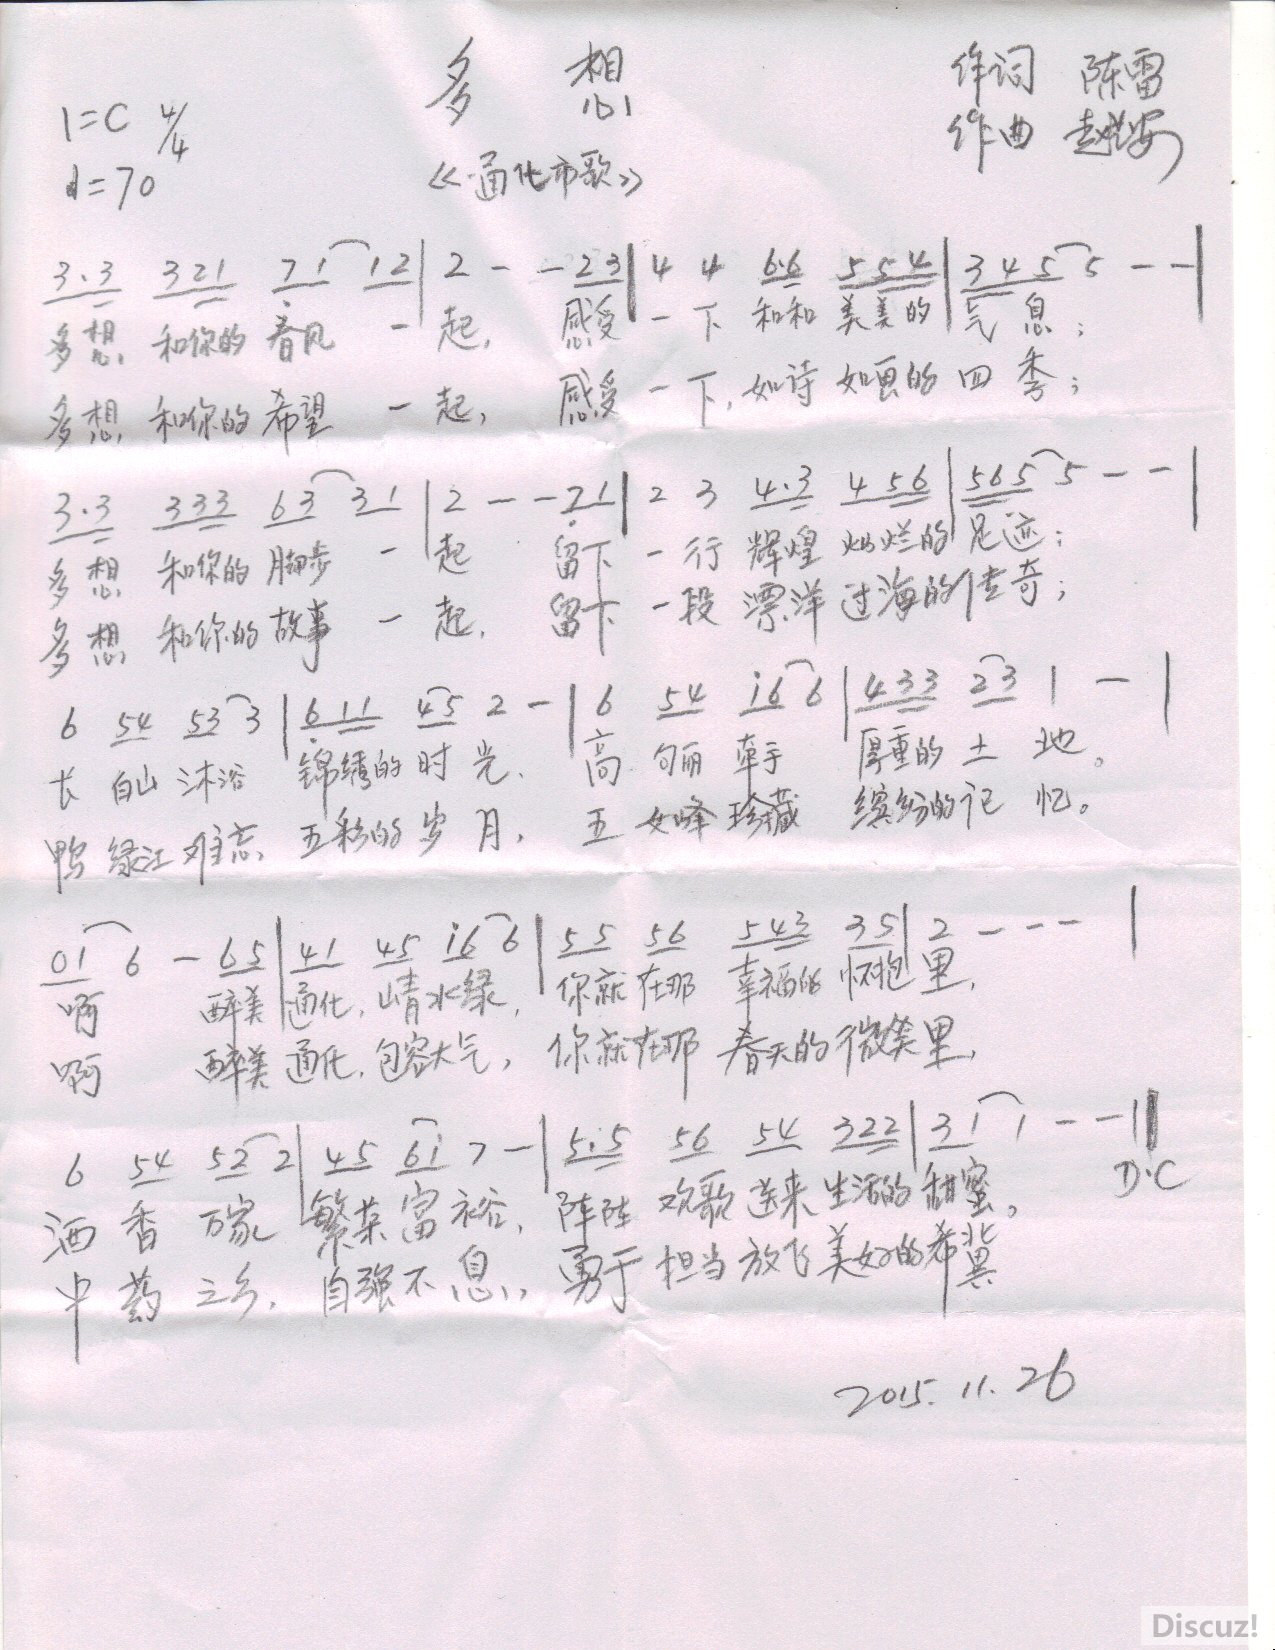 多想
作词 陈雷
1=C 4/4
作曲 赵
♩=70
《通化市歌》
3·3 321 71 12 | 2 - - 23 | 4 4 6·6 554 | 345 5 - - |
多想 和你的 春风 一 起, 感受 一 下 和和 美美的 气息;
多想 和你的 希望 一 起, 感受 一 下, 如诗 如画的 四季;
3·3 333 63 31 | 2 - - 21 | 2 3 4·3 456 | 565 5 - - |
多想 和你的 脚步 一 起 留下 一 行 辉煌 灿烂的 足迹;
多想 和你的 故事 一 起, 留下 一 段 漂洋 过海的 传奇;
6 54 53 3 | 611 45 2 - | 6 54 i6 6 | 433 23 1 - |
长 白山 沐浴 锦绣的 时 光, 高 句丽 牵手 厚重的 土 地。
鸭 绿江 难忘, 五彩的 岁 月, 五 女峰 珍藏 缤纷的 记 忆。
01 6 - 65 | 41 45 i6 6 | 55 56 543 35 | 2 - - - |
啊 醉美 通化, 山青水绿, 你就 在那 幸福的 怀抱 里,
啊 醉美 通化, 包容大气, 你就在那 春天的 微笑 里,
6 54 52 2 | 45 6i 7 - | 5·5 56 54 322 | 31 1 - - ‖
D.C
酒 香 万家 繁荣 富 裕, 阵阵 欢歌 送来 生活的 甜蜜。
中 药 之乡, 自强 不 息, 勇于 担当 放飞 美好的 希冀
2015.11.26
Discuz!